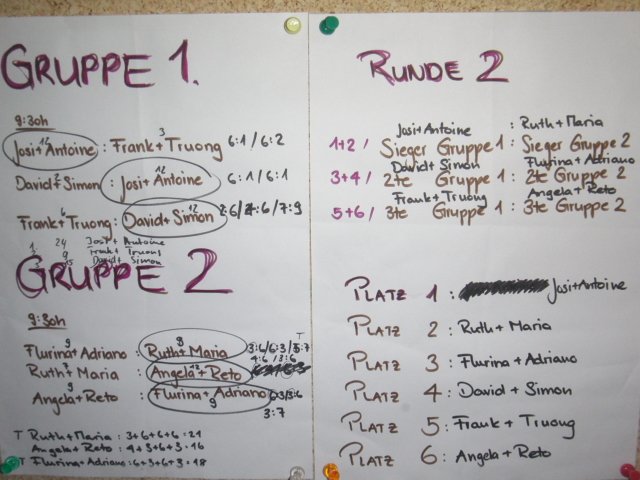 GRUPPE 1.
9:30h
12
Josi+Antoine : Frank+Truong 6:1 / 6:2
3
12
David+Simon : Josi+Antoine 6:1 / 6:1
6 12
Frank+Truong : David+Simon 6 / 6 / 7:9
24 Josi + Antoine
9 Frank + Truong
David + Simon
GRUPPE 2
9:30h
9 9
Flurina+Adriano : Ruth+Maria 3:6/6:3/ :7
4:6 /3:6
Ruth+Maria : Angela+Reto
9
Angela+Reto : Flurina+Adriano 3:6
9 3:7
T Ruth+Maria : 3+6+6+6 = 21
Angela + Reto : 4+3+6+3 = 16
T Flurina+Adriano : 6+3+6+3 = 18
RUNDE 2
Josi+Antoine : Ruth+Maria
1+2 / Sieger Gruppe 1 : Sieger Gruppe 2
David+Simon Flurina+Adriano
3+4 / 2te Gruppe 1 : 2te Gruppe 2
Frank+Truong Angela+Reto
5+6 / 3te Gruppe 1 : 3te Gruppe 2
PLATZ 1 : Josi+Antoine
PLATZ 2 : Ruth + Maria
PLATZ 3 : Flurina+Adriano
PLATZ 4 : David + Simon
PLATZ 5 : Frank + Truong
PLATZ 6 : Angela + Reto